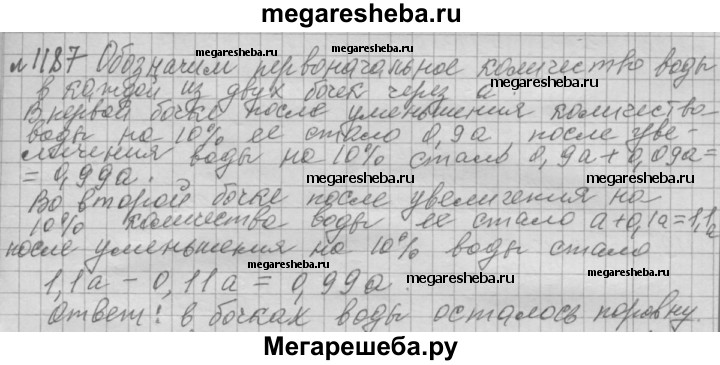 megaresheba.ru
№1187 Обозначим первоначальное количество воды
в каждой из двух бочек через a
В первой бочке после уменьшения количества
воды на 10% ее стало 0,9a после уве-
личения воды на 10% стало 0,9a + 0,09a =
= 0,99a.
Во второй бочке после увеличения на
10% количества воды ее стало a+0,1a=1,1a
после уменьшения на 10% воды стало
1,1a - 0,11a = 0,99a.
Ответ: в бочках воды осталось поровну.
megaresheba.ru
megaresheba.ru
megaresheba.ru
megaresheba.ru
megaresheba.ru
megaresheba.ru
megaresheba.ru
megaresheba.ru
Мегарешеба.ру